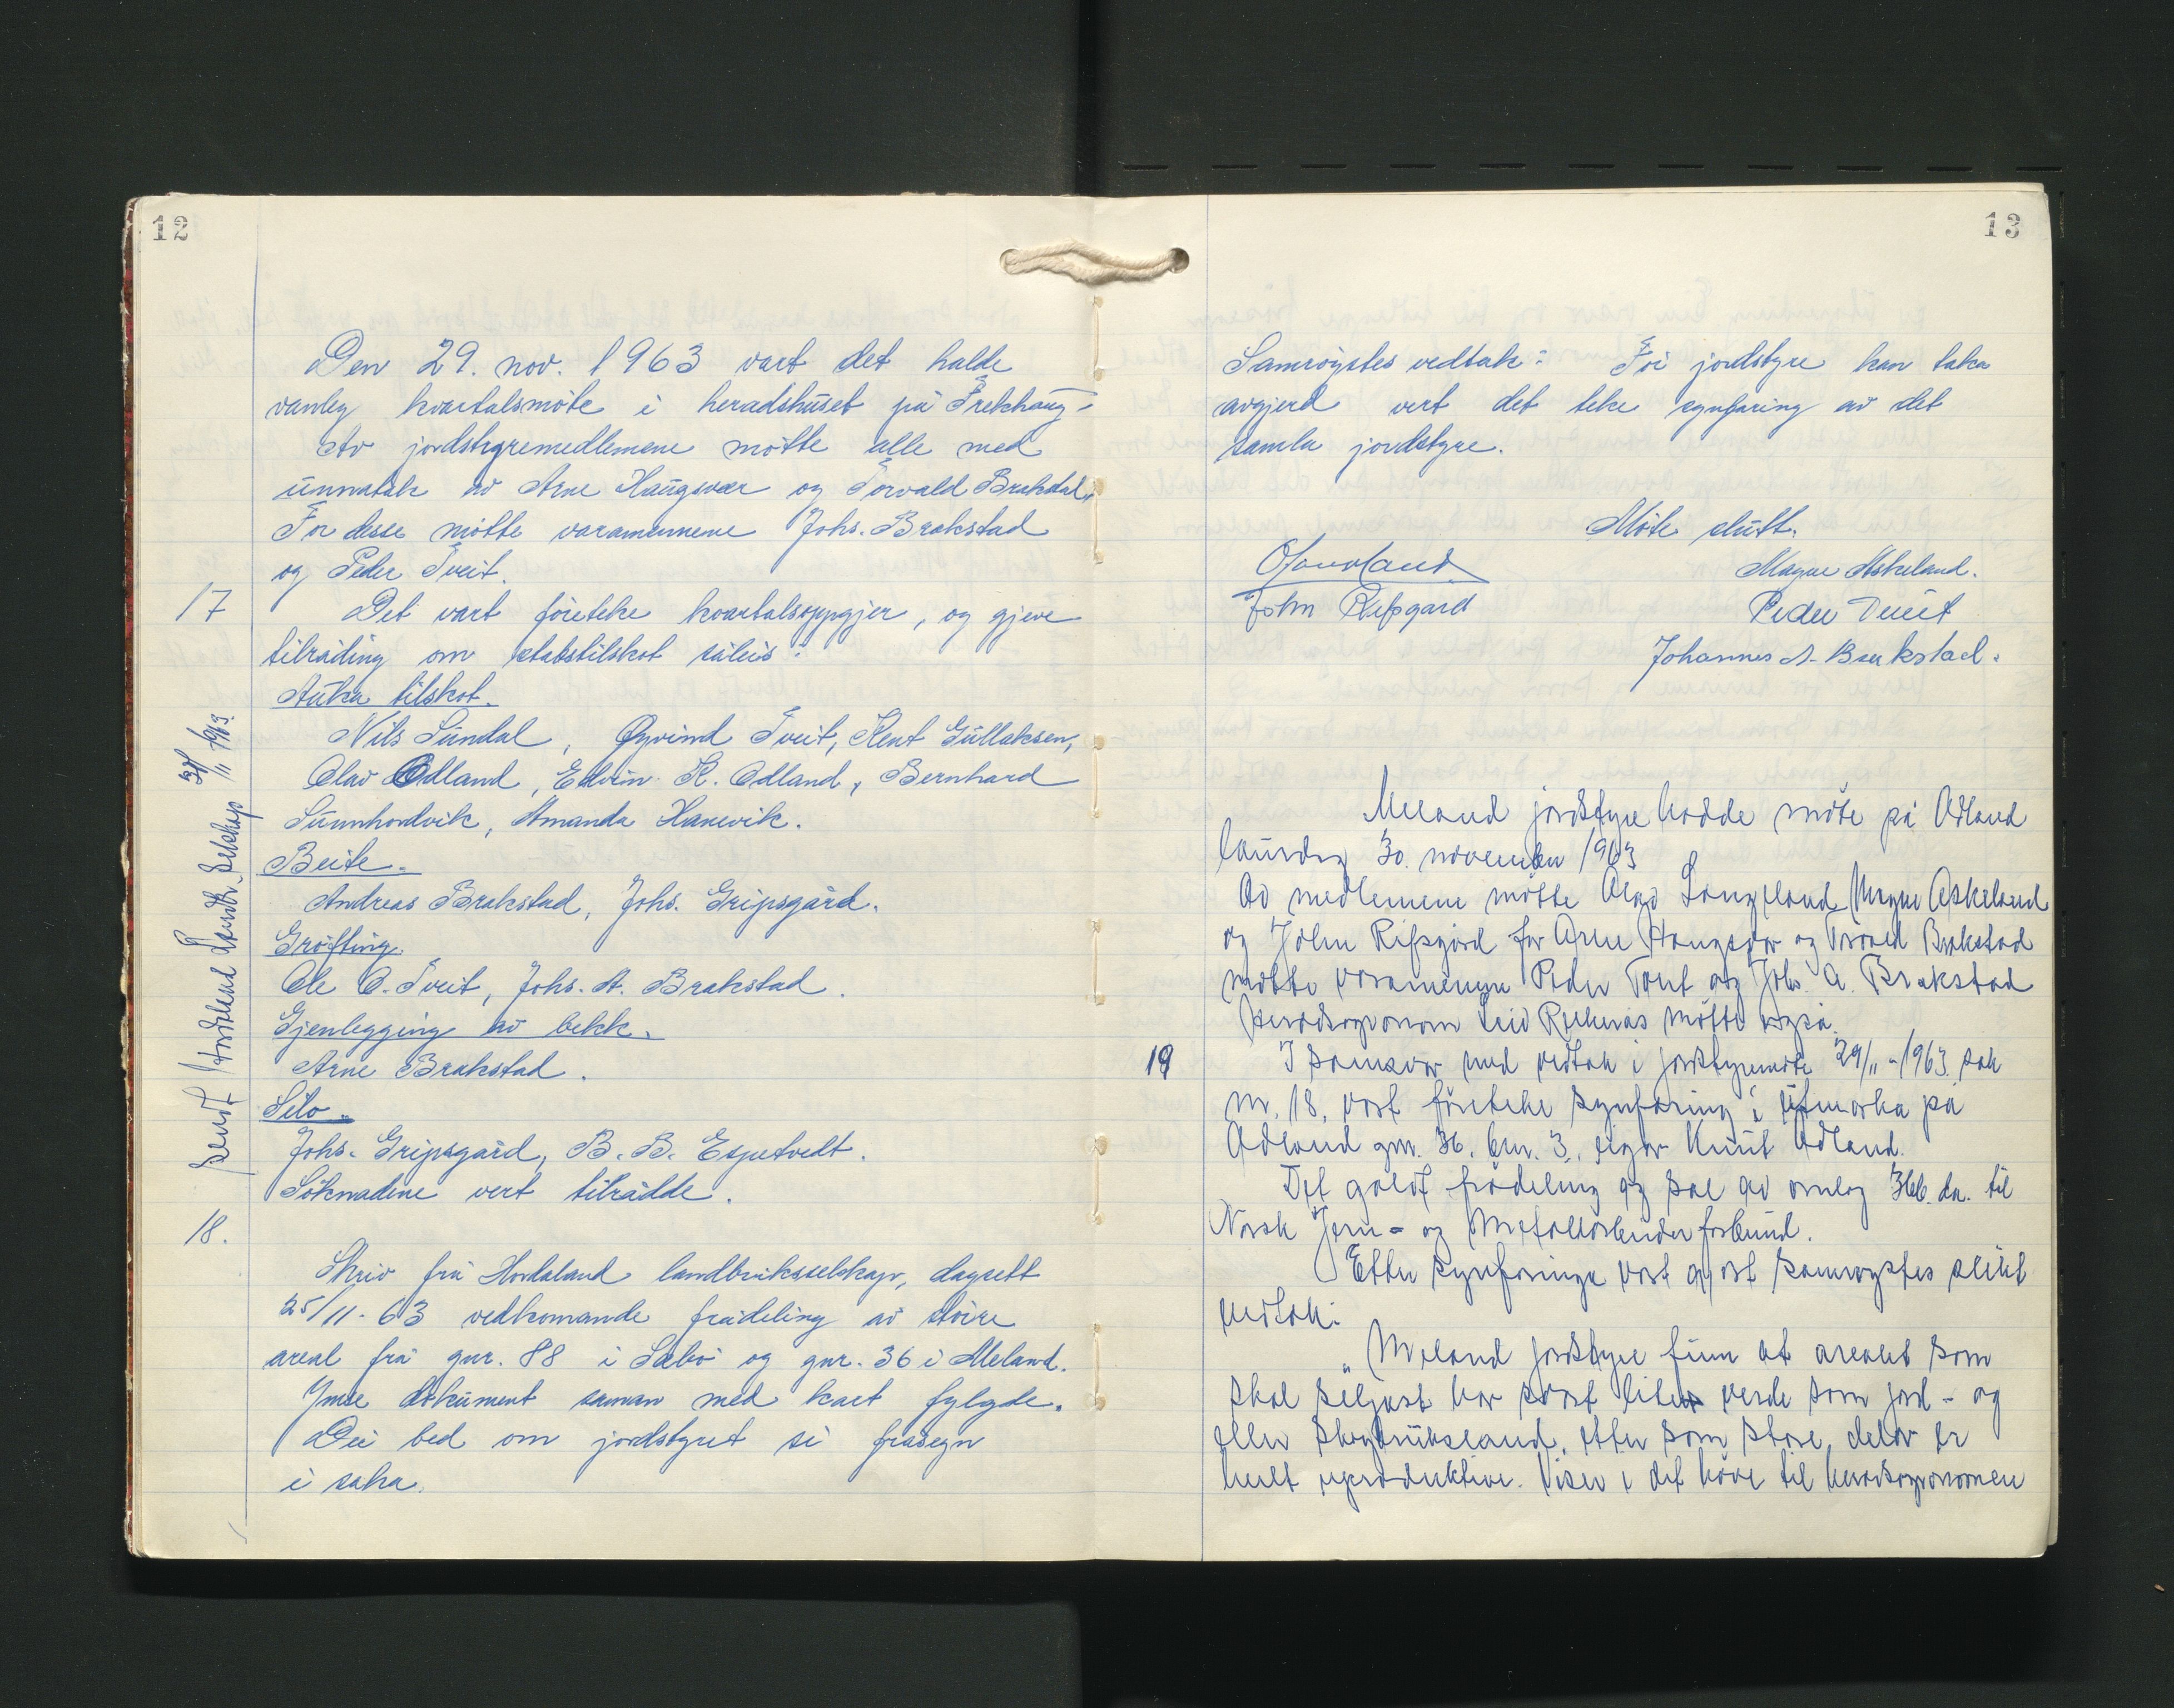 12
Den 29. nov. 1963 vart det halde
vanleg kvartalsmöte i heradshuset på Frekhaug.
Av jordstyremedlemene mötte alle med
unnatak av Arne Haugsvær og Torvald Brakstad.
For desse mötte varamennene Johs. Brakstad
og Peder Tveit.
17
Det vart företeke kvartalsoppgjer, og gjeve
tilråding om statstilskot såleis:
Auka tilskot.
Nils Sundal, Øyvind Tveit, Kent Gullaksen,
Olav Odland, Edvin K. Odland, Bernhard
Sunnhordvik, Amanda Hanevik.
Beite.
Andreas Brakstad, Johs. Gripsgård.
Gröfting.
Ole O. Tveit, Johs. A. Brakstad.
Gjenlegging av bekk.
Arne Brakstad.
Silo.
Johs. Gripsgård, B. B. Espetvedt.
Söknadene vert tilrådde.
sendt Hordaland Landbr. selskap 30/11 1963.
18.
Skriv frå Hordaland landbruksselskap, dagsett
25/11-63 vedkomande frådeling av större
areal frå gnr. 88 i Sæbö og gnr. 36 i Meland.
Ymse dokument saman med kart fylgde.
Dei bed om jordstyret si fråsegn
i saka.
13
Samröystes vedtak: För jordstyre kan taka
avgjerd vert det teke synfaring av det
samla jordstyre.
Möte slutt.
O Langeland
Magne Askeland.
John Rifsgård
Peder Tveit
Johannes A. Brakstad.
Meland jordstyre hadde möte på Odland
laurdag 30. november 1963
Av medlemene mötte Olav Langeland, Magne Askeland
og John Rifsgård for Arne Haugsvær og Torvald Brakstad
mötte varamennene Peder Tveit og Johs. A. Brakstad
Heradsagronom Leiv Rylknäs mötte også.
19
I samsvar med vedtak i jordstyremöte 29/11-1963 sak
nr. 18, vart företeke synfaring i utmarka på
Odland gnr. 36. bnr. 3, eigar Knut Odland.
Det galdt frådeling og sal av omlag 366 da. til
Norsk Jern- og Metallarbeider forbund.
Etter synfaringa vart gjort samröystes slikt
vedtak:
"Meland jordstyre finn at arealet som
skal seljast har svært liten verde som jord- og
eller skogbruksland, etter som store delar er
heilt uproduktive. Viser i det höve til heradsagronomen